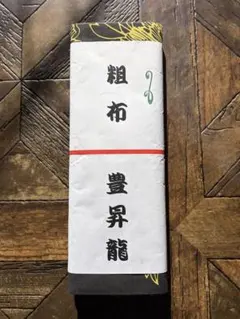 粗布
豊昇龍